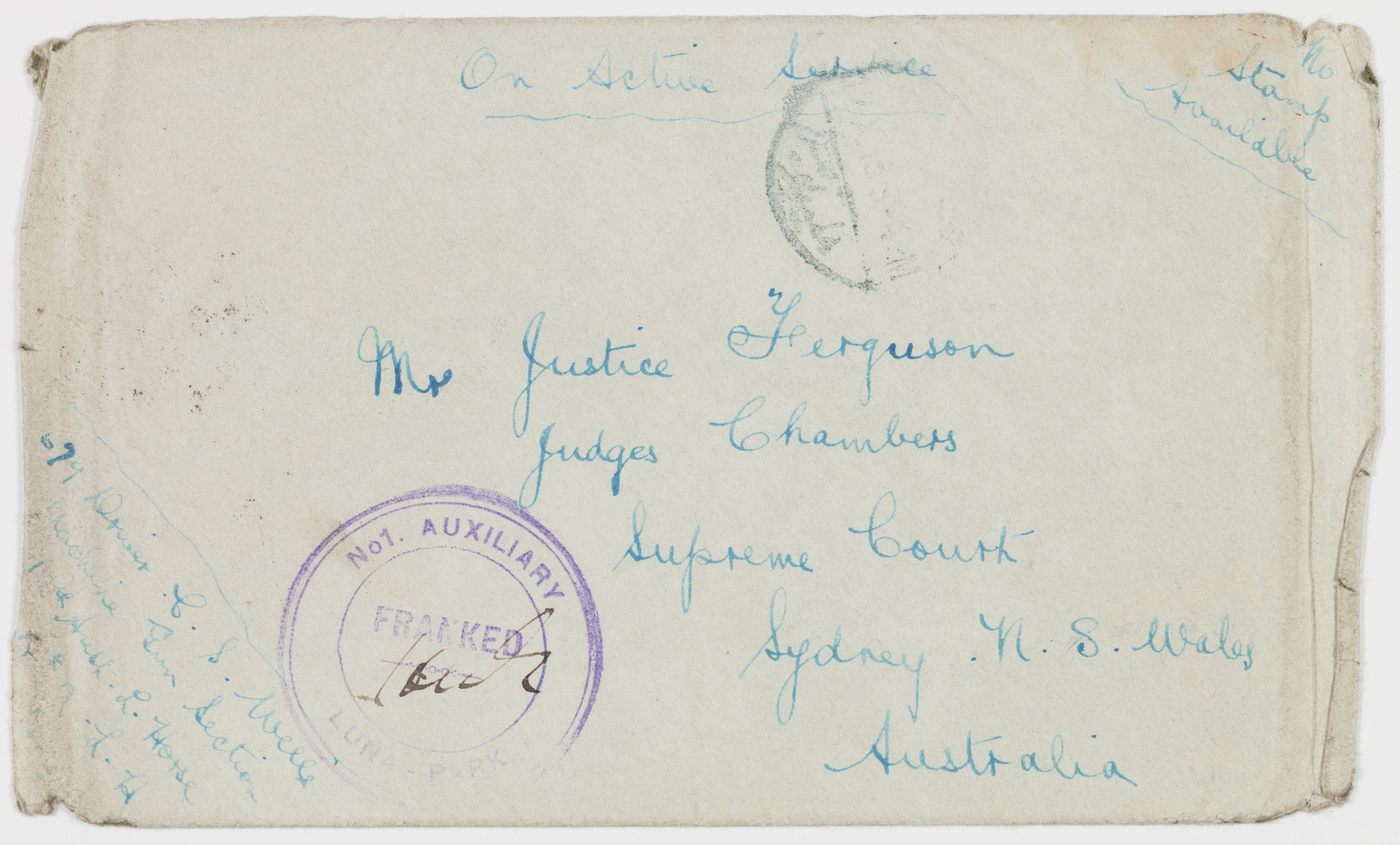 On Active Service
No
Stamp
Available
Mr Justice Ferguson
Judges Chambers
Supreme Court
Sydney . N. S. Wales
Australia
No1. AUXILIARY
FRANKED
LUNA - PARK
Driver C. S. Wells
Machine Gun Section
Aust. L. Horse